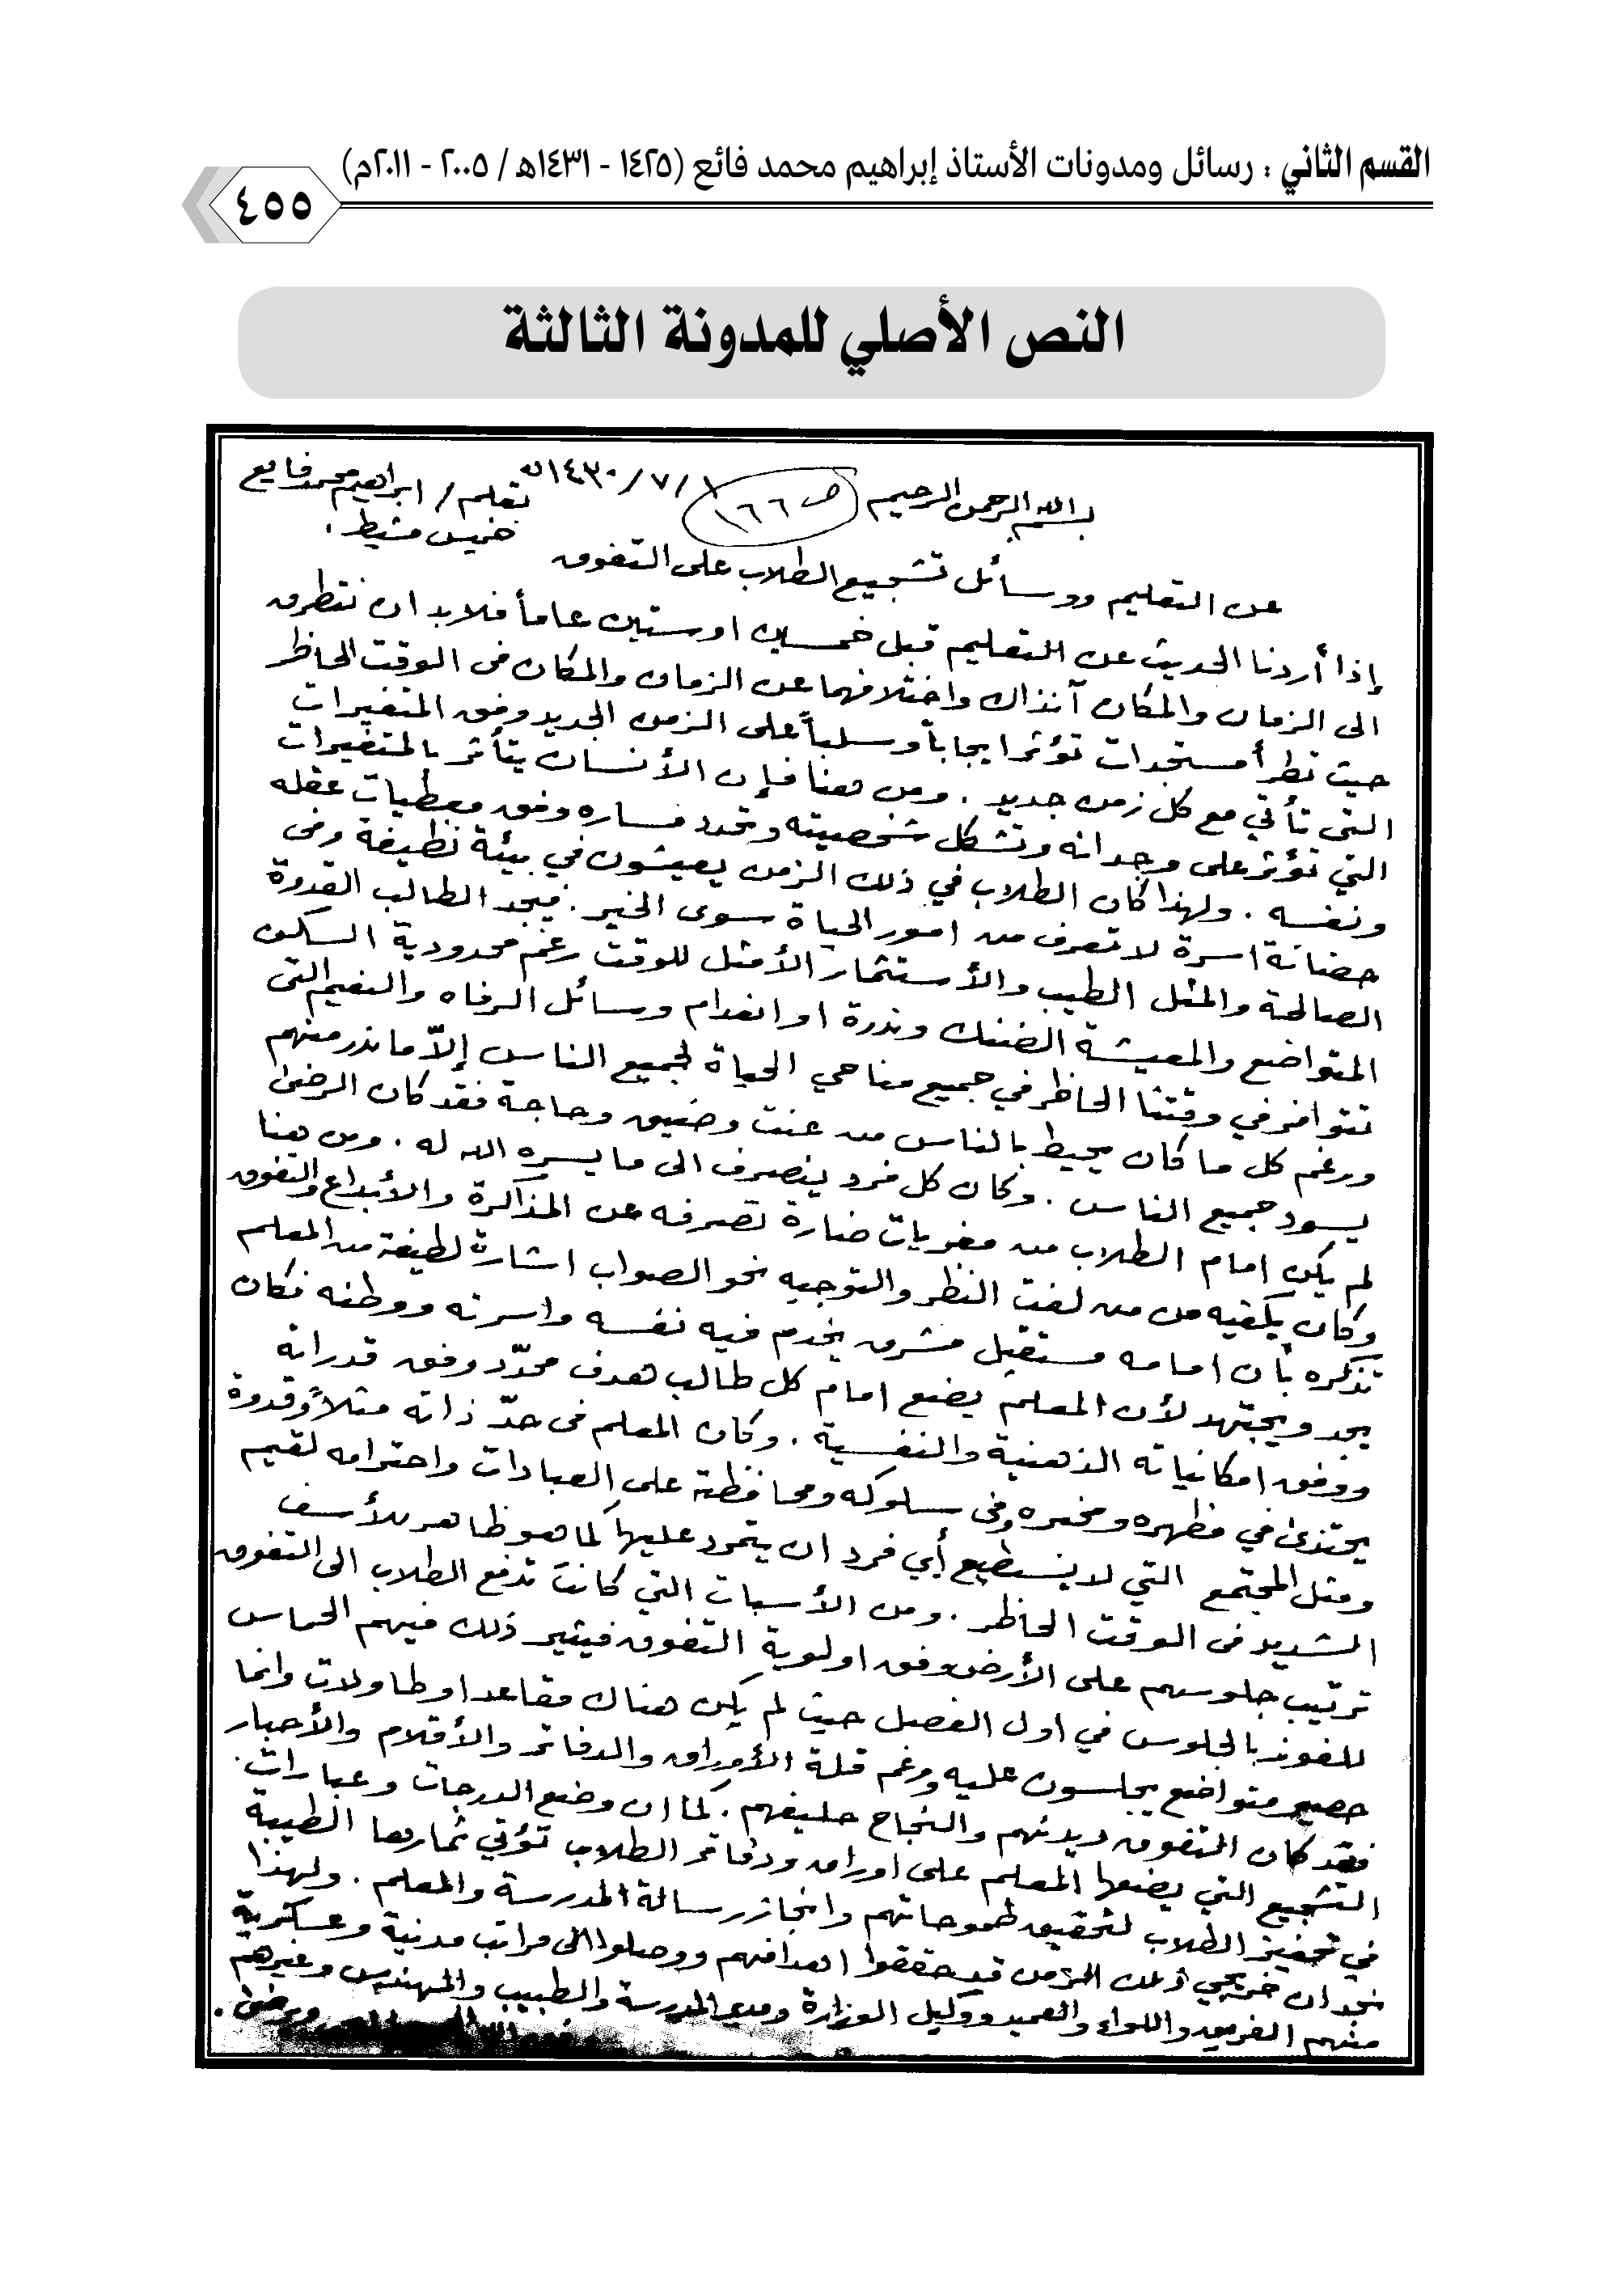 القسم الثاني : رسائل ومدونات الأستاذ إبراهيم محمد فائع (١٤٢٥ - ١٤٣١هـ / ٢٠٠٥ - ٢٠١١م)
٤٥٥
النص الأصلي للمدونة الثالثة
بسم الله الرحمن الرحيم ص ١٦٦ ١/٧/١٤٣٠هـ بقلم / ابراهيم محمد فايع
خميس مشيط .
عن التعليم ووسائل تشجيع الطلاب على التفوق
إذا أردنا الحديث عن التعليم قبل خمسين او ستين عاماً فلابد ان نتطرق
الى الزمان والمكان آنذاك واختلافهما عن الزمان والمكان في الوقت الحاظر
حيث تطرأ مستجدات تؤثر ايجاباً وسلباً على الزمن الجديد وفق المتغيرات
التي تأتي مع كل زمن جديد . ومن هنا فإن الأنسان يتأثر بالمتغيرات
التي تؤثر على وجدانه وتشكل شخصيته وتحدد مساره وفق معطيات عقله
ونفسه . ولهذا كان الطلاب في ذلك الزمن يعيشون في بيئة نظيفة وفى
حضانة اسرة لا تعرف من امور الحياة سوى الخير . فيجد الطالب القدوة
الصالحة والمثل الطيب والأستثمار الأمثل للوقت رغم محدودية السكن
المتواضع والمعيشة الضنك وندرة او انعدام وسائل الرفاه والنعيم التى
تتوافر في وقتنا الحاظر في جميع مناحي الحياة لجميع الناس إلاّ ما ندر منهم
ورغم كل ما كان يحيط بالناس من عنت وضيق وحاجة فقد كان الرضى
يسود جميع الناس . وكان كل فرد ينصرف الى ما يسره الله له . ومن هنا
لم يكن امام الطلاب من مغريات ضارة تصرفه عن المذاكرة والأبداع والتفوق
وكان يكفيه من من لفت النظر والتوجيه نحو الصواب اشارة لطيفة من المعلم
تذكره بأن امامه مستقبل مشرق يخدم فيه نفسه واسرته ووطنه فكان
يجد ويجتهد لأن المعلم يضع امام كل طالب هدف محدّد وفق قدراته
ووفق امكانياته الذهنية والنفسية . وكان المعلم فى حدّ ذاته مثلاً وقدوة
يحتذى في مظهره ومخبره وفى سلوكه ومحافظته على العبادات واحترامه لقيم
ومثل المجتمع التي لا يستطيع أي فرد ان يتمرد عليها كما هو ظاهر للأسف
الشديد فى الوقت الحاظر . ومن الأسباب التي كانت تدفع الطلاب الى التفوق
ترتيب جلوسهم على الأرض وفق اولوية التفوق فيثير ذلك فيهم الحماس
للفوز بالجلوس في اول الفصل حيث لم يكن هناك مقاعد او طاولات وانما
حصير متواضع يجلسون عليه ورغم قلة الأوراق والدفاتر والأقلام والأحبار
فقد كان التفوق ديدنهم والنجاح حليفهم . كما ان وضع الدرجات وعبارات
التشجيع التي يضعها المعلم على اوراق ودفاتر الطلاب تؤتي ثمارها الطيبة
في تحفيز الطلاب لتحقيق طموحاتهم وانجاز رسالة المدرسة والمعلم . ولهذا
نجد ان خريجي ذلك الزمن قد حققوا اهدافهم ووصلوا الى مراتب مدنية وعسكرية
منهم الفريق واللواء والعميد ووكيل الوزارة ومدير المدرسة والطبيب والمهندس وغيرهم